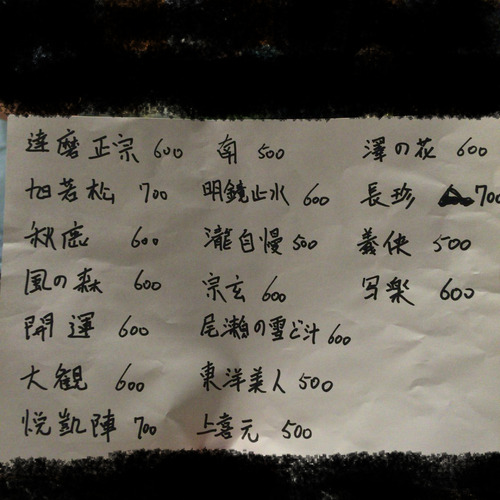 達磨正宗 600
旭若松 700
秋鹿 600
風の森 600
開運 600
大観 600
悦凱陣 700
南 500
明鏡止水 600
瀧自慢 500
宗玄 600
尾瀬の雪どけ 600
東洋美人 500
上喜元 500
澤の花 600
長珍 700
義侠 500
写楽 600